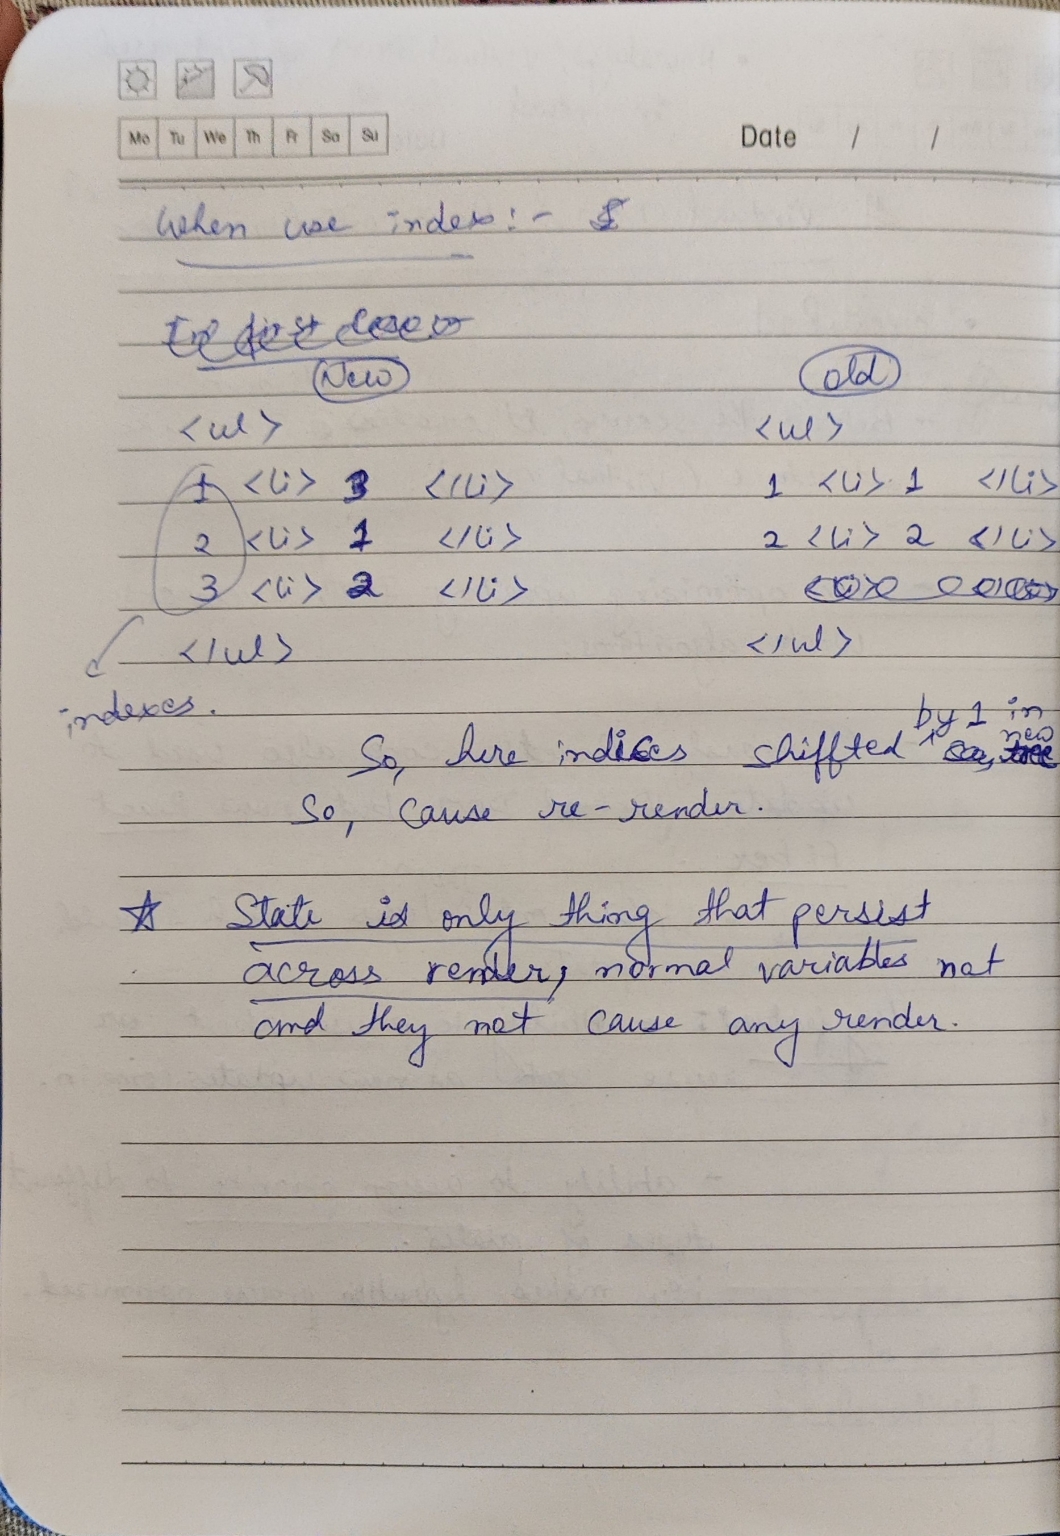 Mo Tu We Th Fr Sa Su
Date / /
When use index :-
New old
<ul> <ul>
1 <li> 3 </li> 1 <li> 1 </li>
2 <li> 1 </li> 2 <li> 2 </li>
3 <li> 2 </li>
</ul> </ul>
indexes.
by 1 in
new
So, here indices shiffted tree
So, cause re-render.
☆ State is only thing that persist
across render, normal variables not
and they not cause any render.